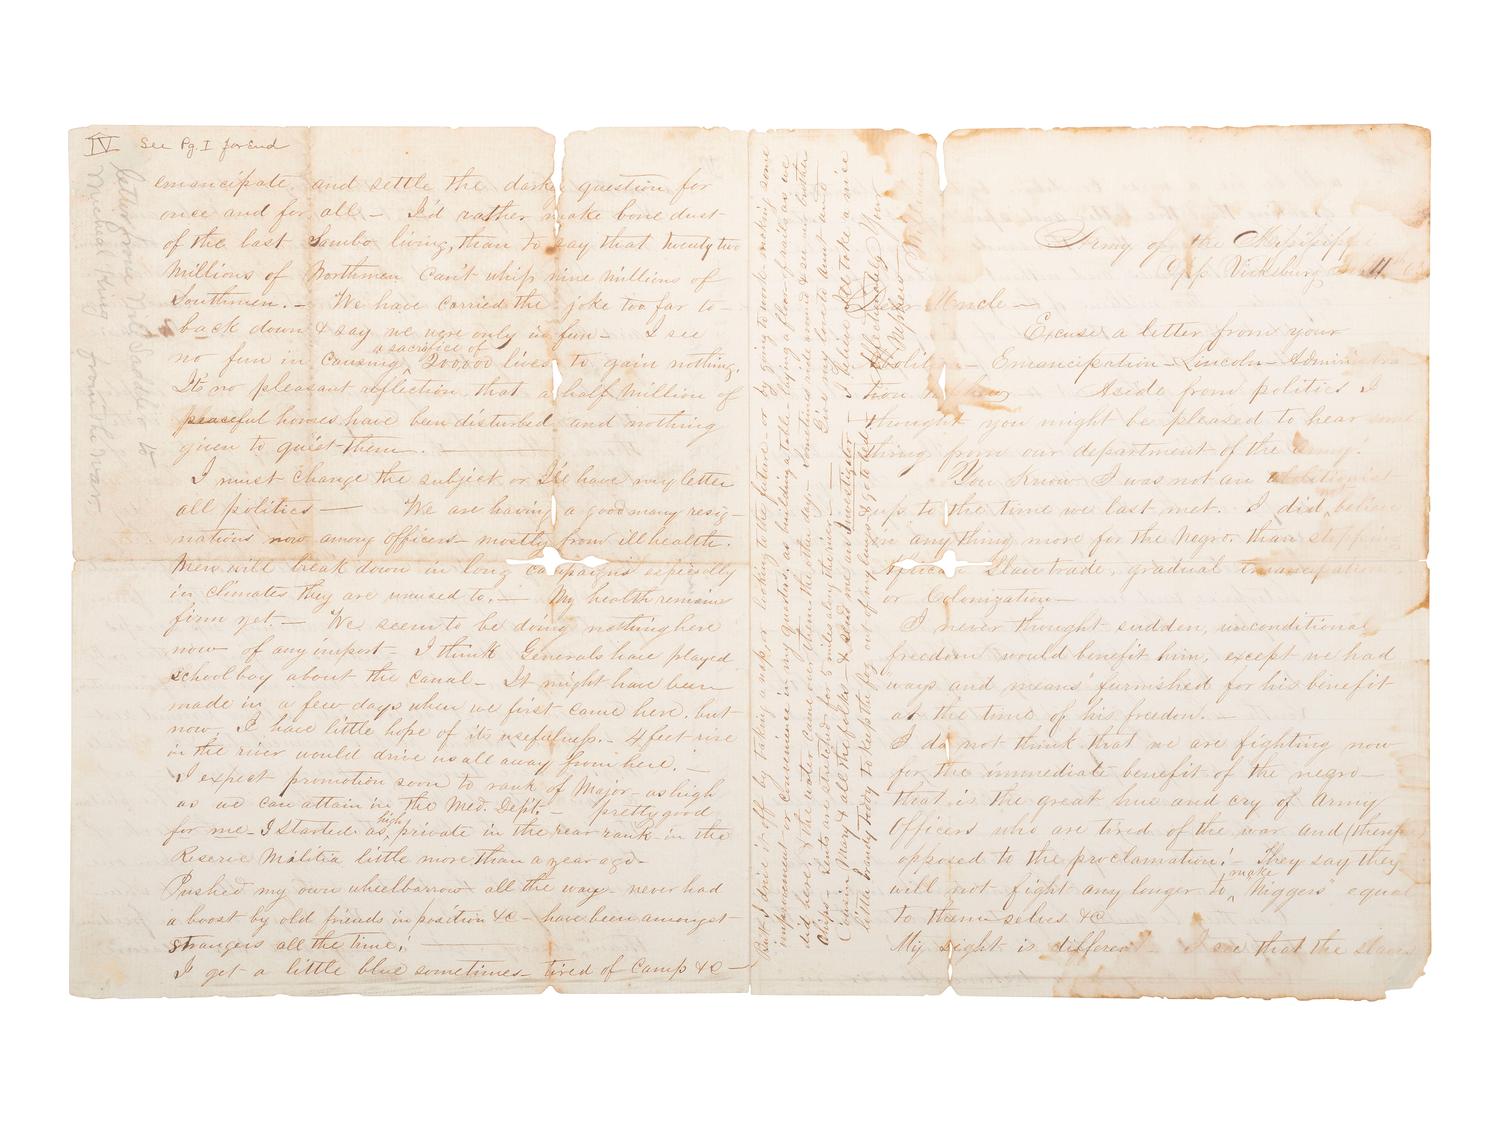 IV See Pg. I for End
letter from Will Saddler to
Michael King. from the war
emancipate, and settle the darkey question for
once and for all – I'd rather make bone dust
of the last Sambo living, than to say that twenty two
Millions of Northmen Can't whip nine millions of
Southmen. – We have carried the joke too far to
back down & say we were only in fun – I see
no fun in causing a sacrifice of 200,000 lives to gain nothing.
Its no pleasant reflection that a half Million of
peaceful homes have been disturbed and nothing
given to quiet them. –
I must change the subject or I'll have my letter
all politics – We are having a good many resig-
nations now among officers – mostly from ill health.
Men will break down in long campaigns especially
in climates they are unused to. – My health remains
firm yet. – We seem to be doing nothing here
now of any import – I think Generals have played
schoolboy about the canal – It might have been
made in a few days when we first came here, but
now, I have little hope of its usefulness. – 4 feet rise
in the river would drive us all away from here. –
I expect promotion soon to rank of Major – as high
as we can attain in the Med. Dept. – pretty good
for me – I started as high private in the rear rank in the
Reserve Militia little more than a year ago –
Pushed my own wheelbarrow all the way – never had
a boost by old friends in position &c – have been amongst
strangers all the time! –
I get a little blue sometimes – tired of Camp &c –
But I drive it off by taking a nap, or looking to the future – or by going to work making some
improvement or convenience in my quarters, as building a table – laying a floor of rails as we
did here, & the water came over them the other day – Sometimes ride around & see my brother
Chips – tents are stretched for 5 miles along the river – Give my love to Aunt and
Cousin Mary & all the folks – & send me an Investigator – I believe I'll take a nice
little brandy toddy to keep the fog out of my lungs & go to bed – Affectionately Your
Nephew
Army of the Mississippi
Opp Vicksburg 11
Dear Uncle –
Excuse a letter from your
– Emancipation – Lincoln – Administra
Aside from politics I
thought you might be pleased to hear some
thing from our department of the army.
You Know I was not an abolitionist
up to the time we last met. – I did not believe
in any thing more for the Negro, than stopping
African Slave trade, gradual emancipation,
or Colonization –
I never thought sudden, unconditional
freedom would benefit him, except we had
'ways and means' furnished for his benefit
at the time of his freedom. –
I do not think that we are fighting now
for the immediate benefit of the negro –
that is the great hue and cry of Army
Officers who are tired of the war and (therefore
opposed to the proclamation! – They say they
will not fight any longer to make "Niggers" equal
to them selves &c
My sight is different – I see that the slaves